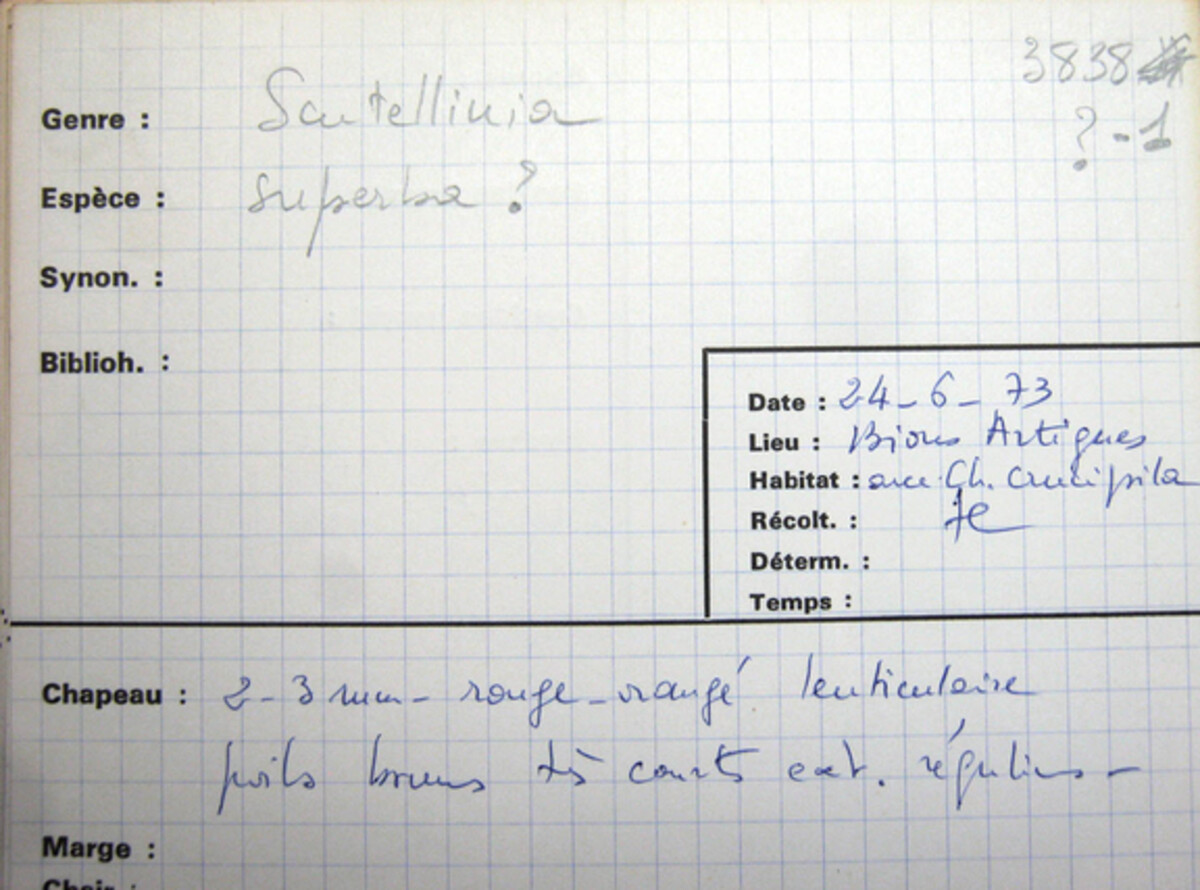 3838
? - 1
Genre : Scutellinia
Espèce : superba ?
Synon. :
Biblioh. :
Date : 24 - 6 - 73
Lieu : Bious Artigues
Habitat : avec Ch. crucipila
Récolt. :
Déterm. :
Temps :
Chapeau : 2 - 3 mm - rouge - orangé lenticulaire
poils bruns très courts ext. réguliers -
Marge :
Chair :